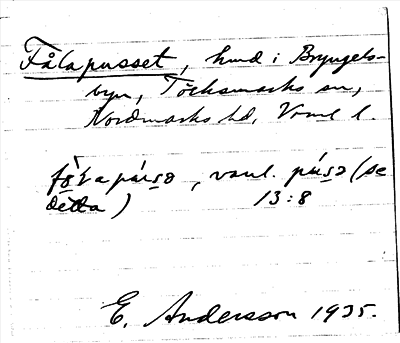 Fålapusset, hmd i Bryngels-
byn, Töcksmarks sn,
Nordmarks hd, Vrml l.
vanl. (se
detta) 13:8
E. Andersson 1935.